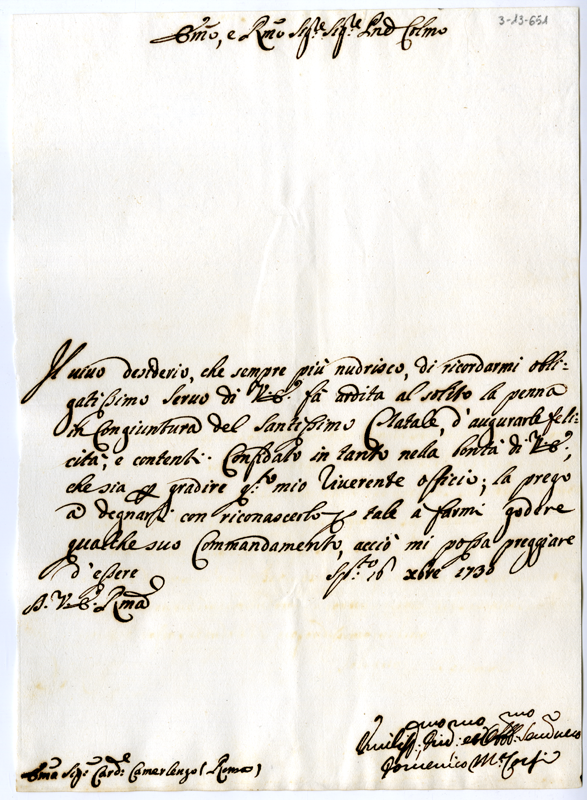 3-13-651
Em̃o, e Rm̃o Sig.re Sig.re Pnd Colmo
Il vivo desiderio, che sempre più nudrisco, di ricordarmi obli-
gatissimo Servo di V.E. fà ardita al solito la penna
in Congiuntura del Santissimo Natale, d'augurarle feli-
cità, e contenti. Confidato in tanto nella bontà di V.E.,
che sia per gradire q.sto mio riverente officio; la prego
à degnarsi con riconoscerlo per tale à farmi godere
qualche suo Commandamento, acciò mi possa preggiare
d'essere
16 xbre 1730
D. V. E. Rm̃a
Umiliss: Div: ed Obb: Servitore
Domenico M.a Corsi
Em̃o Sig.r Card: Camerlengo (Roma)